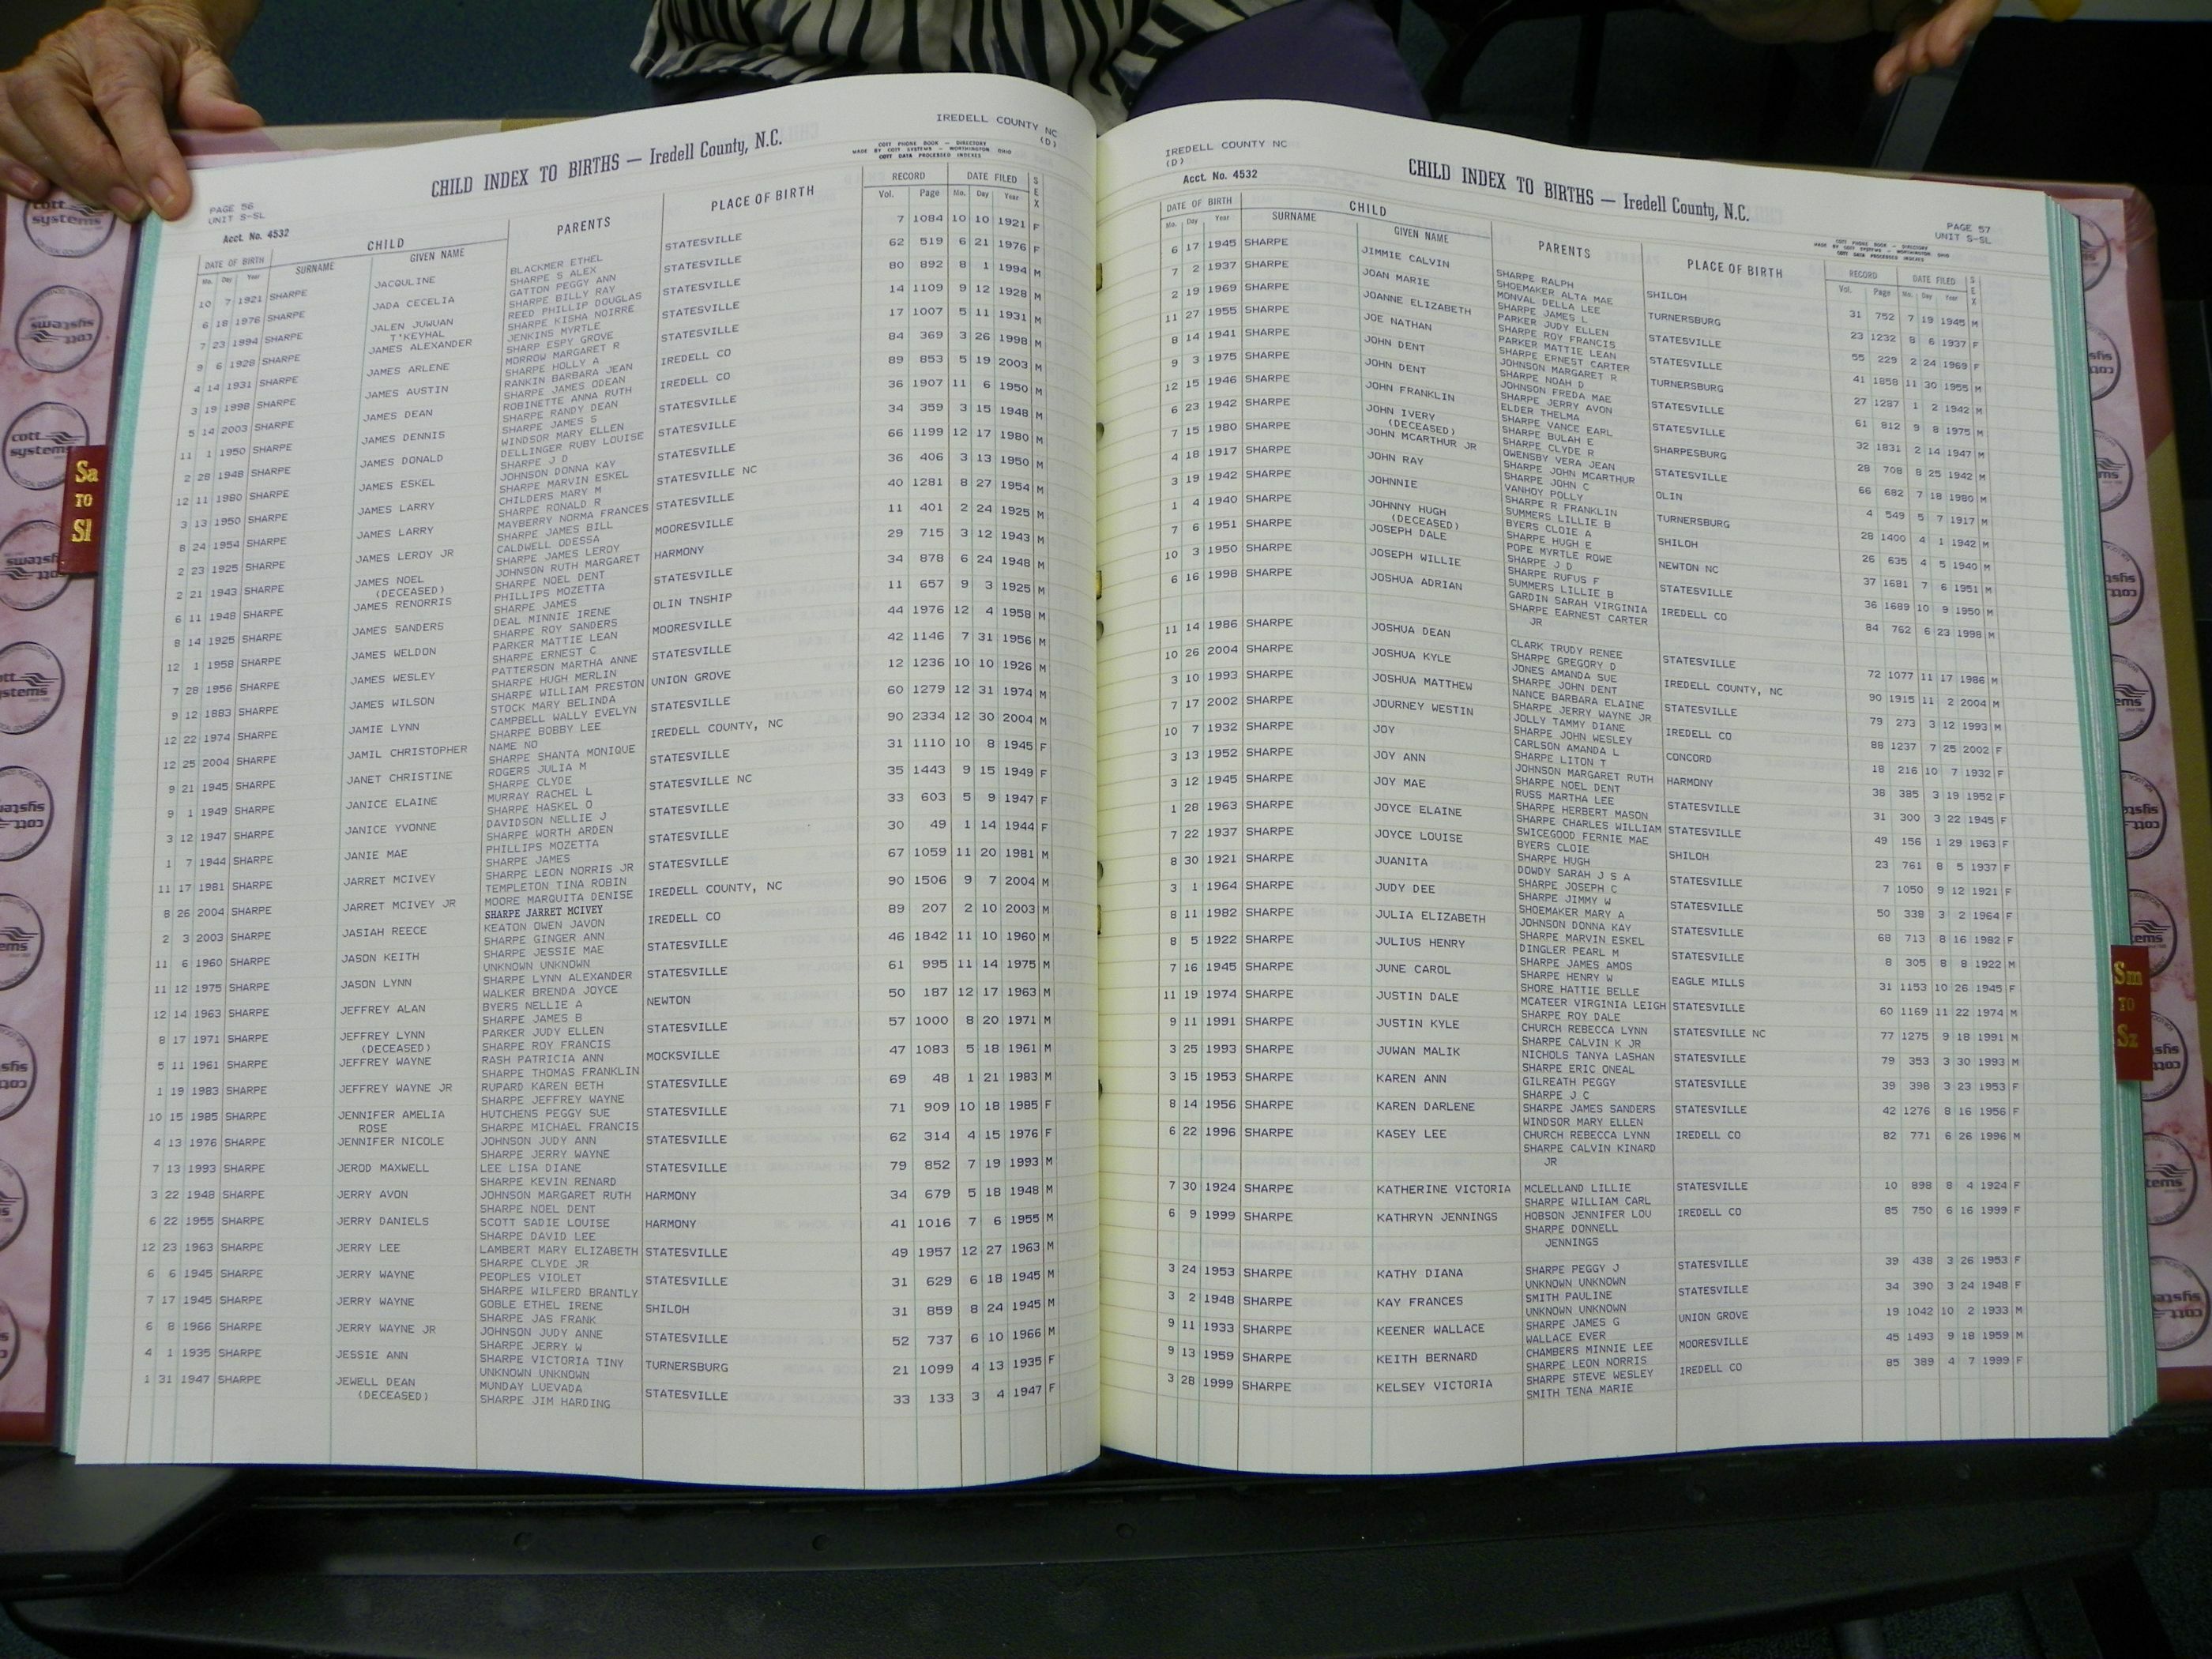 IREDELL COUNTY NC
(D)
CHILD INDEX TO BIRTHS — Iredell County, N.C.
COTT PHONE BOOK — DIRECTORY
MADE BY COTT SYSTEMS — WORTHINGTON OHIO
COTT DATA PROCESSED INDEXES
PAGE 56
UNIT S-SL
Acct. No. 4532
DATE OF BIRTH CHILD PARENTS PLACE OF BIRTH RECORD DATE FILED SEX
Mo. Day Year SURNAME GIVEN NAME Vol. Page Mo. Day Year
10 7 1921 SHARPE JACQULINE BLACKMER ETHEL STATESVILLE 7 1084 10 10 1921 F
SHARPE S ALEX
6 18 1976 SHARPE JADA CECELIA GATTON PEGGY ANN STATESVILLE 62 519 6 21 1976 F
SHARPE BILLY RAY
7 23 1994 SHARPE JALEN JUWUAN REED PHILLIP DOUGLAS STATESVILLE 80 892 8 1 1994 M
T'KEYHAL SHARPE KISHA NOIRRE
9 6 1928 SHARPE JAMES ALEXANDER JENKINS MYRTLE STATESVILLE 14 1109 9 12 1928 M
SHARP ESPY GROVE
4 14 1931 SHARPE JAMES ARLENE MORROW MARGARET R STATESVILLE 17 1007 5 11 1931 M
SHARPE HOLLY A
3 19 1998 SHARPE JAMES AUSTIN RANKIN BARBARA JEAN IREDELL CO 84 369 3 26 1998 M
SHARPE JAMES ODEAN
5 14 2003 SHARPE JAMES DEAN ROBINETTE ANNA RUTH IREDELL CO 89 853 5 19 2003 M
SHARPE RANDY DEAN
11 1 1950 SHARPE JAMES DENNIS SHARPE JAMES S STATESVILLE 36 1907 11 6 1950 M
WINDSOR MARY ELLEN
2 28 1948 SHARPE JAMES DONALD DELLINGER RUBY LOUISE STATESVILLE 34 359 3 15 1948 M
SHARPE J D
12 11 1980 SHARPE JAMES ESKEL JOHNSON DONNA KAY STATESVILLE 66 1199 12 17 1980 M
SHARPE MARVIN ESKEL
3 13 1950 SHARPE JAMES LARRY CHILDERS MARY M STATESVILLE NC 36 406 3 13 1950 M
SHARPE RONALD R
8 24 1954 SHARPE JAMES LARRY MAYBERRY NORMA FRANCES STATESVILLE 40 1281 8 27 1954 M
SHARPE JAMES BILL
2 23 1925 SHARPE JAMES LEROY JR CALDWELL ODESSA MOORESVILLE 11 401 2 24 1925 M
SHARPE JAMES LEROY
2 21 1943 SHARPE JAMES NOEL JOHNSON RUTH MARGARET HARMONY 29 715 3 12 1943 M
(DECEASED) SHARPE NOEL DENT
6 11 1948 SHARPE JAMES RENORRIS PHILLIPS MOZETTA STATESVILLE 34 878 6 24 1948 M
SHARPE JAMES
8 14 1925 SHARPE JAMES SANDERS DEAL MINNIE IRENE OLIN TNSHIP 11 657 9 3 1925 M
SHARPE ROY SANDERS
12 1 1958 SHARPE JAMES WELDON PARKER MATTIE LEAN MOORESVILLE 44 1976 12 4 1958 M
SHARPE ERNEST C
7 28 1956 SHARPE JAMES WESLEY PATTERSON MARTHA ANNE STATESVILLE 42 1146 7 31 1956 M
SHARPE HUGH MERLIN
9 12 1883 SHARPE JAMES WILSON SHARPE WILLIAM PRESTON UNION GROVE 12 1236 10 10 1926 M
STOCK MARY BELINDA
12 22 1974 SHARPE JAMIE LYNN CAMPBELL WALLY EVELYN STATESVILLE 60 1279 12 31 1974 M
SHARPE BOBBY LEE
12 25 2004 SHARPE JAMIL CHRISTOPHER NAME NO IREDELL COUNTY, NC 90 2334 12 30 2004 M
SHARPE SHANTA MONIQUE
9 21 1945 SHARPE JANET CHRISTINE ROGERS JULIA M STATESVILLE 31 1110 10 8 1945 F
SHARPE CLYDE
9 1 1949 SHARPE JANICE ELAINE MURRAY RACHEL L STATESVILLE NC 35 1443 9 15 1949 F
SHARPE HASKEL O
3 12 1947 SHARPE JANICE YVONNE DAVIDSON NELLIE J STATESVILLE 33 603 5 9 1947 F
SHARPE WORTH ARDEN
1 7 1944 SHARPE JANIE MAE PHILLIPS MOZETTA STATESVILLE 30 49 1 14 1944 F
SHARPE JAMES
11 17 1981 SHARPE JARRET MCIVEY SHARPE LEON NORRIS JR STATESVILLE 67 1059 11 20 1981 M
TEMPLETON TINA ROBIN
8 26 2004 SHARPE JARRET MCIVEY JR MOORE MARQUITA DENISE IREDELL COUNTY, NC 90 1506 9 7 2004 M
SHARPE JARRET MCIVEY
2 3 2003 SHARPE JASIAH REECE KEATON OWEN JAVON IREDELL CO 89 207 2 10 2003 M
SHARPE GINGER ANN
11 6 1960 SHARPE JASON KEITH SHARPE JESSIE MAE STATESVILLE 46 1842 11 10 1960 M
UNKNOWN UNKNOWN
11 12 1975 SHARPE JASON LYNN SHARPE LYNN ALEXANDER STATESVILLE 61 995 11 14 1975 M
WALKER BRENDA JOYCE
12 14 1963 SHARPE JEFFREY ALAN BYERS NELLIE A NEWTON 50 187 12 17 1963 M
SHARPE JAMES B
8 17 1971 SHARPE JEFFREY LYNN PARKER JUDY ELLEN STATESVILLE 57 1000 8 20 1971 M
(DECEASED) SHARPE ROY FRANCIS
5 11 1961 SHARPE JEFFREY WAYNE RASH PATRICIA ANN MOCKSVILLE 47 1083 5 18 1961 M
SHARPE THOMAS FRANKLIN
1 19 1983 SHARPE JEFFREY WAYNE JR RUPARD KAREN BETH STATESVILLE 69 48 1 21 1983 M
SHARPE JEFFREY WAYNE
10 15 1985 SHARPE JENNIFER AMELIA HUTCHENS PEGGY SUE STATESVILLE 71 909 10 18 1985 F
ROSE SHARPE MICHAEL FRANCIS
4 13 1976 SHARPE JENNIFER NICOLE JOHNSON JUDY ANN STATESVILLE 62 314 4 15 1976 F
SHARPE JERRY WAYNE
7 13 1993 SHARPE JEROD MAXWELL LEE LISA DIANE STATESVILLE 79 852 7 19 1993 M
SHARPE KEVIN RENARD
3 22 1948 SHARPE JERRY AVON JOHNSON MARGARET RUTH HARMONY 34 679 5 18 1948 M
SHARPE NOEL DENT
6 22 1955 SHARPE JERRY DANIELS SCOTT SADIE LOUISE HARMONY 41 1016 7 6 1955 M
SHARPE DAVID LEE
12 23 1963 SHARPE JERRY LEE LAMBERT MARY ELIZABETH STATESVILLE 49 1957 12 27 1963 M
SHARPE CLYDE JR
6 6 1945 SHARPE JERRY WAYNE PEOPLES VIOLET STATESVILLE 31 629 6 18 1945 M
SHARPE WILFERD BRANTLY
7 17 1945 SHARPE JERRY WAYNE GOBLE ETHEL IRENE SHILOH 31 859 8 24 1945 M
SHARPE JAS FRANK
6 8 1966 SHARPE JERRY WAYNE JR JOHNSON JUDY ANNE STATESVILLE 52 737 6 10 1966 M
SHARPE JERRY W
4 1 1935 SHARPE JESSIE ANN SHARPE VICTORIA TINY TURNERSBURG 21 1099 4 13 1935 F
UNKNOWN UNKNOWN
1 31 1947 SHARPE JEWELL DEAN MUNDAY LUEVADA STATESVILLE 33 133 3 4 1947 F
(DECEASED) SHARPE JIM HARDING
IREDELL COUNTY NC
(D)
Acct. No. 4532
CHILD INDEX TO BIRTHS — Iredell County, N.C.
PAGE 57
UNIT S-SL
COTT PHONE BOOK — DIRECTORY
MADE BY COTT SYSTEMS — WORTHINGTON OHIO
COTT DATA PROCESSED INDEXES
DATE OF BIRTH CHILD PARENTS PLACE OF BIRTH RECORD DATE FILED SEX
Mo. Day Year SURNAME GIVEN NAME Vol. Page Mo. Day Year
6 17 1945 SHARPE JIMMIE CALVIN SHARPE RALPH SHILOH 31 752 7 19 1945 M
SHOEMAKER ALTA MAE
7 2 1937 SHARPE JOAN MARIE MONVAL DELLA LEE TURNERSBURG 23 1232 8 6 1937 F
SHARPE JAMES L
2 19 1969 SHARPE JOANNE ELIZABETH PARKER JUDY ELLEN STATESVILLE 55 229 2 24 1969 F
SHARPE ROY FRANCIS
11 27 1955 SHARPE JOE NATHAN PARKER MATTIE LEAN TURNERSBURG 41 1858 11 30 1955 M
SHARPE ERNEST CARTER
8 14 1941 SHARPE JOHN DENT JOHNSON MARGARET R STATESVILLE 27 1287 1 2 1942 M
SHARPE NOAH D
9 3 1975 SHARPE JOHN DENT JOHNSON FREDA MAE STATESVILLE 61 812 9 8 1975 M
SHARPE JERRY AVON
12 15 1946 SHARPE JOHN FRANKLIN ELDER THELMA SHARPESBURG 32 1831 2 14 1947 M
SHARPE VANCE EARL
6 23 1942 SHARPE JOHN IVERY SHARPE BULAH E STATESVILLE 28 708 8 25 1942 M
(DECEASED) SHARPE CLYDE R
7 15 1980 SHARPE JOHN MCARTHUR JR OWENSBY VERA JEAN OLIN 66 682 7 18 1980 M
SHARPE JOHN MCARTHUR
4 18 1917 SHARPE JOHN RAY SHARPE JOHN C TURNERSBURG 4 549 5 7 1917 M
VANHOY POLLY
3 19 1942 SHARPE JOHNNIE SHARPE R FRANKLIN SHILOH 28 1400 4 1 1942 M
SUMMERS LILLIE B
1 4 1940 SHARPE JOHNNY HUGH BYERS CLOIE A NEWTON NC 26 635 4 5 1940 M
(DECEASED) SHARPE HUGH E
7 6 1951 SHARPE JOSEPH DALE POPE MYRTLE ROWE STATESVILLE 37 1681 7 6 1951 M
SHARPE J D
10 3 1950 SHARPE JOSEPH WILLIE SHARPE RUFUS F IREDELL CO 36 1689 10 9 1950 M
SUMMERS LILLIE B
6 16 1998 SHARPE JOSHUA ADRIAN GARDIN SARAH VIRGINIA 84 762 6 23 1998 M
SHARPE EARNEST CARTER
JR
11 14 1986 SHARPE JOSHUA DEAN CLARK TRUDY RENEE STATESVILLE 72 1077 11 17 1986 M
SHARPE GREGORY D
10 26 2004 SHARPE JOSHUA KYLE JONES AMANDA SUE IREDELL COUNTY, NC 90 1915 11 2 2004 M
SHARPE JOHN DENT
3 10 1993 SHARPE JOSHUA MATTHEW NANCE BARBARA ELAINE STATESVILLE 79 273 3 12 1993 M
SHARPE JERRY WAYNE JR
7 17 2002 SHARPE JOURNEY WESTIN JOLLY TAMMY DIANE IREDELL CO 88 1237 7 25 2002 F
SHARPE JOHN WESLEY
10 7 1932 SHARPE JOY CARLSON AMANDA L CONCORD 18 216 10 7 1932 F
SHARPE LITON T
3 13 1952 SHARPE JOY ANN JOHNSON MARGARET RUTH HARMONY 38 385 3 19 1952 F
SHARPE NOEL DENT
3 12 1945 SHARPE JOY MAE RUSS MARTHA LEE STATESVILLE 31 300 3 22 1945 F
SHARPE HERBERT MASON
1 28 1963 SHARPE JOYCE ELAINE SHARPE CHARLES WILLIAM STATESVILLE 49 156 1 29 1963 F
SWICEGOOD FERNIE MAE
7 22 1937 SHARPE JOYCE LOUISE BYERS CLOIE SHILOH 23 761 8 5 1937 F
SHARPE HUGH
8 30 1921 SHARPE JUANITA DOWDY SARAH J S A STATESVILLE 7 1050 9 12 1921 F
SHARPE JOSEPH C
3 1 1964 SHARPE JUDY DEE SHARPE JIMMY W STATESVILLE 50 338 3 2 1964 F
SHOEMAKER MARY A
8 11 1982 SHARPE JULIA ELIZABETH JOHNSON DONNA KAY STATESVILLE 68 713 8 16 1982 F
SHARPE MARVIN ESKEL
8 5 1922 SHARPE JULIUS HENRY DINGLER PEARL M STATESVILLE 8 305 8 8 1922 M
SHARPE JAMES AMOS
7 16 1945 SHARPE JUNE CAROL SHARPE HENRY W EAGLE MILLS 31 1153 10 26 1945 F
SHORE HATTIE BELLE
11 19 1974 SHARPE JUSTIN DALE MCATEER VIRGINIA LEIGH STATESVILLE 60 1169 11 22 1974 M
SHARPE ROY DALE
9 11 1991 SHARPE JUSTIN KYLE CHURCH REBECCA LYNN STATESVILLE NC 77 1275 9 18 1991 M
SHARPE CALVIN K JR
3 25 1993 SHARPE JUWAN MALIK NICHOLS TANYA LASHAN STATESVILLE 79 353 3 30 1993 M
SHARPE ERIC ONEAL
3 15 1953 SHARPE KAREN ANN GILREATH PEGGY STATESVILLE 39 398 3 23 1953 F
SHARPE J C
8 14 1956 SHARPE KAREN DARLENE SHARPE JAMES SANDERS STATESVILLE 42 1276 8 16 1956 F
WINDSOR MARY ELLEN
6 22 1996 SHARPE KASEY LEE CHURCH REBECCA LYNN IREDELL CO 82 771 6 26 1996 M
SHARPE CALVIN KINARD
JR
7 30 1924 SHARPE KATHERINE VICTORIA MCLELLAND LILLIE STATESVILLE 10 898 8 4 1924 F
SHARPE WILLIAM CARL
6 9 1999 SHARPE KATHRYN JENNINGS HOBSON JENNIFER LOU IREDELL CO 85 750 6 16 1999 F
SHARPE DONNELL
JENNINGS
3 24 1953 SHARPE KATHY DIANA SHARPE PEGGY J STATESVILLE 39 438 3 26 1953 F
UNKNOWN UNKNOWN
3 2 1948 SHARPE KAY FRANCES SMITH PAULINE STATESVILLE 34 390 3 24 1948 F
UNKNOWN UNKNOWN
9 11 1933 SHARPE KEENER WALLACE SHARPE JAMES G UNION GROVE 19 1042 10 2 1933 M
WALLACE EVER
9 13 1959 SHARPE KEITH BERNARD CHAMBERS MINNIE LEE MOORESVILLE 45 1493 9 18 1959 M
SHARPE LEON NORRIS
3 28 1999 SHARPE KELSEY VICTORIA SHARPE STEVE WESLEY IREDELL CO 85 389 4 7 1999 F
SMITH TENA MARIE
Sa
TO
Sl
Sm
TO
Sz
cott
systems